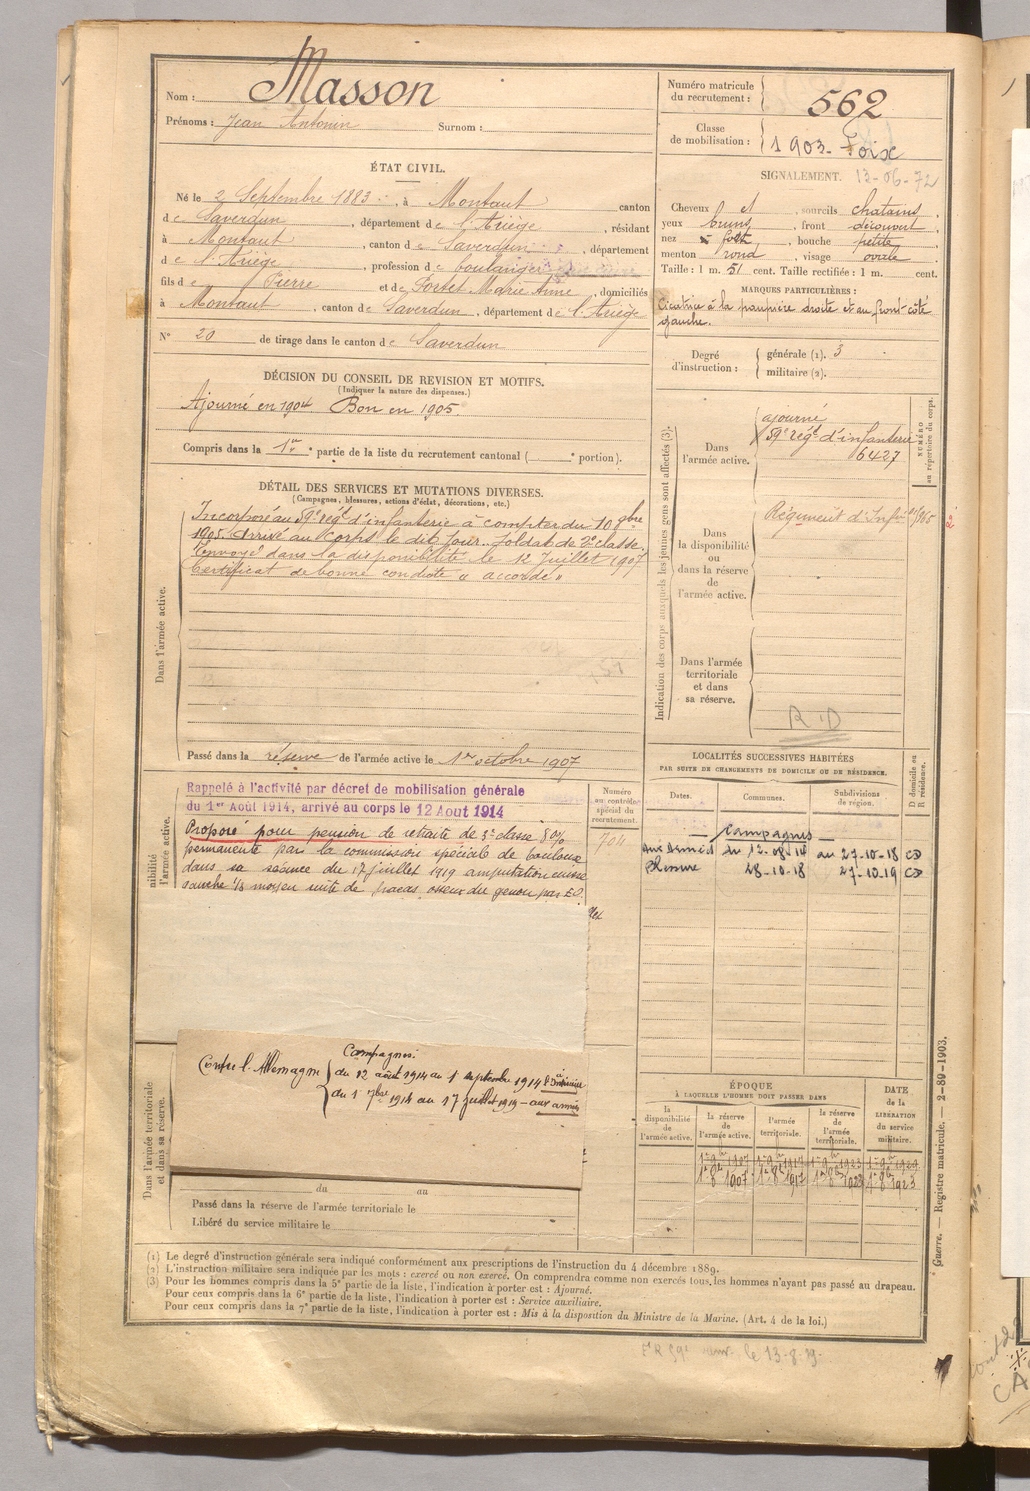 Nom : Masson
Prénoms : Jean Antonin Surnom :
Numéro matricule du recrutement : 562
Classe de mobilisation : 1903 - Foix
ÉTAT CIVIL.
Né le 2 Septembre 1883, à Montaut canton
de Saverdun, département de l'Ariège, résidant
à Montaut, canton de Saverdun, département
de l'Ariège, profession de boulanger
fils de Pierre et de Portet Marie Anne, domiciliés
à Montaut, canton de Saverdun, département de l'Ariège
N° 20 de tirage dans le canton de Saverdun
SIGNALEMENT. 13-06-72
Cheveux et, sourcils chatains,
yeux bruns, front découvert
nez fort, bouche petite,
menton rond, visage ovale
Taille : 1 m. 51 cent. Taille rectifiée : 1 m. cent.
MARQUES PARTICULIÈRES :
Cicatrice à la paupière droite et au front côté
gauche.
Degré d'instruction : générale (1). 3
militaire (2).
DÉCISION DU CONSEIL DE REVISION ET MOTIFS.
(Indiquer la nature des dispenses.)
Ajourné en 1904. Bon en 1905
Compris dans la 1re partie de la liste du recrutement cantonal ( e portion).
DÉTAIL DES SERVICES ET MUTATIONS DIVERSES.
(Campagnes, blessures, actions d'éclat, décorations, etc.)
Dans l'armée active.
Incorporé au 59e régt d'infanterie à compter du 10 8bre
1905. Arrivé au corps le dit jour. Soldat de 2e classe.
Envoyé dans la disponibilité le 12 Juillet 1907
Certificat de bonne conduite « accordé »
Passé dans la réserve de l'armée active le 1er octobre 1907
Indication des corps auxquels les jeunes gens sont affectés (3).
NUMÉRO au répertoire du corps.
Dans l'armée active.
ajourné
59e régt d'infanterie
6427
Dans la disponibilité ou dans la réserve de l'armée active.
Régiment d'Infie
Dans l'armée territoriale et dans sa réserve.
R D
nibilité l'armée active.
Rappelé à l'activité par décret de mobilisation générale
du 1er Août 1914, arrivé au corps le 12 Aout 1914
Proposé pour pension de retraite de 3e classe 80%
permanente par la commission spéciale de Toulouse
dans sa séance du 17 juillet 1919 amputation cuisse
gauche 1/3 moyen suite de fracas osseux du genou par E.O.
Numéro au contrôle spécial du recrutement.
704
LOCALITÉS SUCCESSIVES HABITÉES
PAR SUITE DE CHANGEMENTS DE DOMICILE OU DE RÉSIDENCE.
Dates. Communes. Subdivisions de région. D domicile ou R résidence.
Campagnes
Aux Armées du 12-08-14 au 27-10-18 CD
Blessure 28-10-18 27-10-19 CD
Dans l'armée territoriale et dans sa réserve.
Campagnes.
Contre l'Allemagne
du 12 août 1914 au 1 septembre 1914 à l'Intérieur
du 1 7bre 1914 au 17 juillet 1919 - aux armées
du au
Passé dans la réserve de l'armée territoriale le
Libéré du service militaire le
ÉPOQUE
À LAQUELLE L'HOMME DOIT PASSER DANS
la disponibilité de l'armée active. la réserve de l'armée active. l'armée territoriale. la réserve de l'armée territoriale.
DATE de la LIBÉRATION du service militaire.
(1) Le degré d'instruction générale sera indiqué conformément aux prescriptions de l'instruction du 4 décembre 1889.
(2) L'instruction militaire sera indiquée par les mots : exercé ou non exercé. On comprendra comme non exercés tous les hommes n'ayant pas passé au drapeau.
(3) Pour les hommes compris dans la 5e partie de la liste, l'indication à porter est : Ajourné.
Pour ceux compris dans la 6e partie de la liste, l'indication à porter est : Service auxiliaire.
Pour ceux compris dans la 7e partie de la liste, l'indication à porter est : Mis à la disposition du Ministre de la Marine. (Art. 4 de la loi.)
Guerre. — Registre matricule. — 2-89-1903.